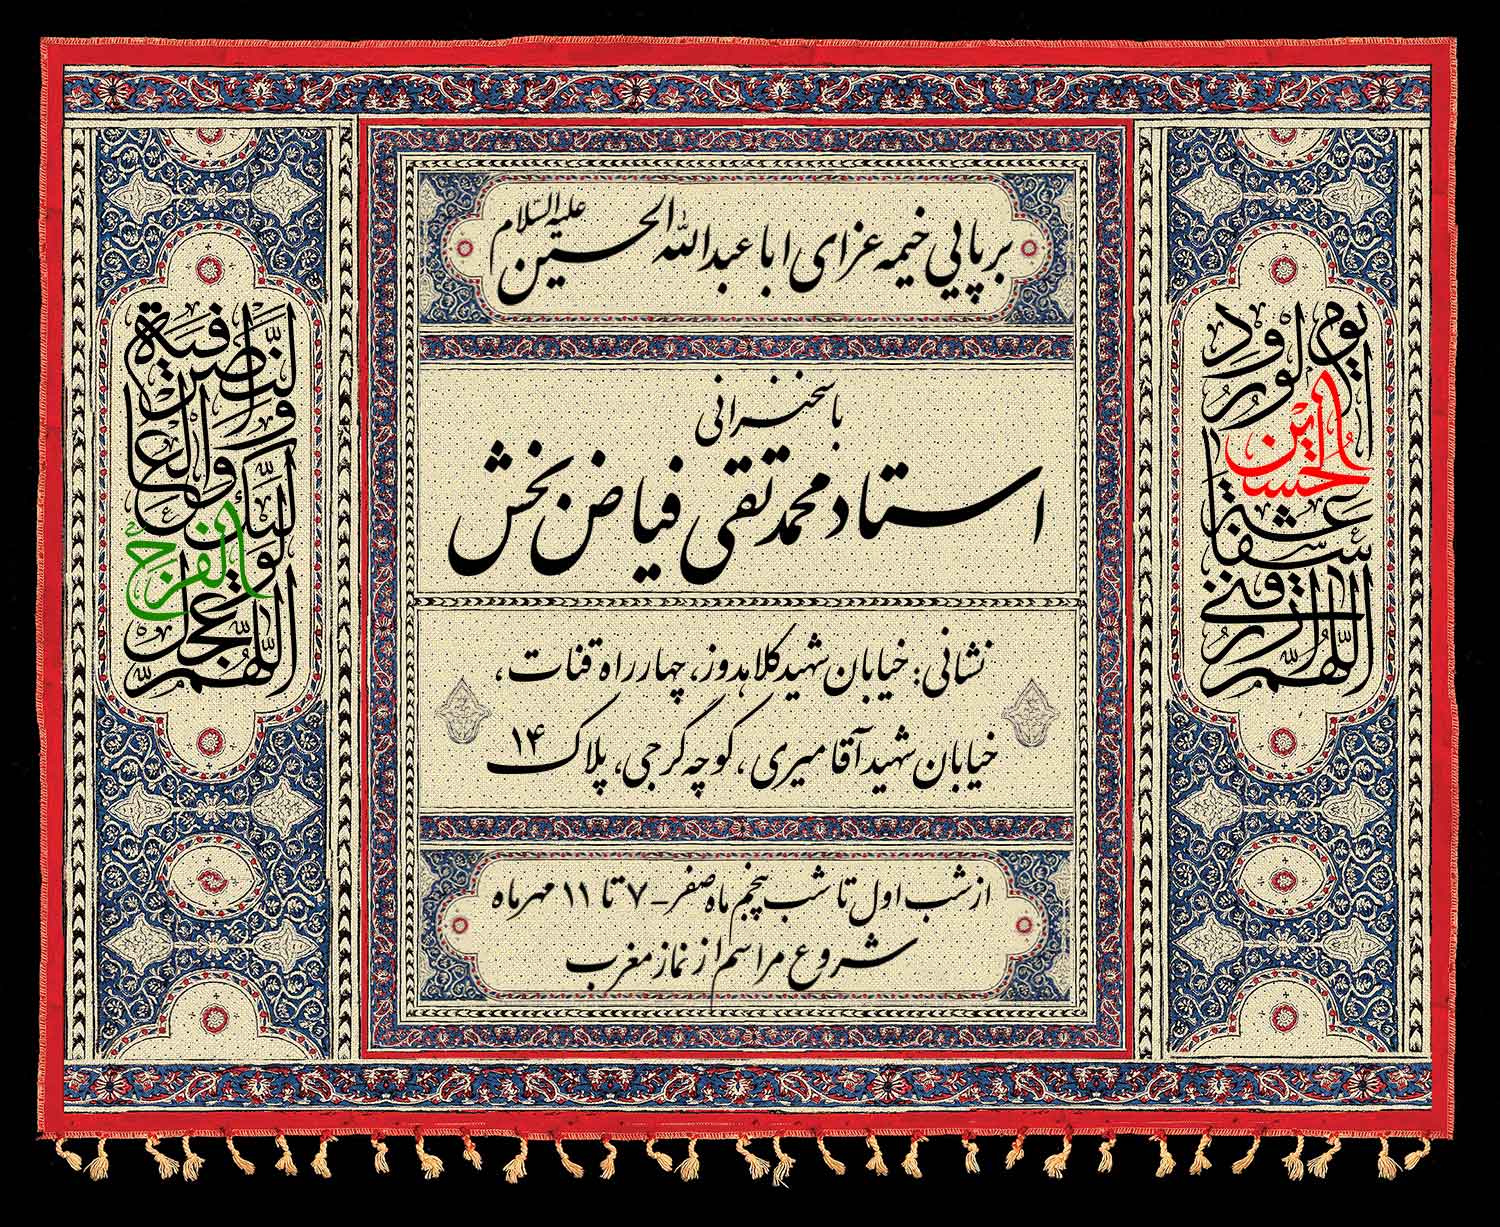 برپایی خیمه عزای اباعبدالله الحسین علیه السلام
با سخنرانی
استاد محمدتقی فیاض بخش
نشانی: خیابان شهید کلاهدوز، چهارراه قنات،
خیابان شهید آقامیری، کوچه گرجی، پلاک ۱۴
از شب اول تا شب پنجم ماه صفر - ۷ تا ۱۱ مهرماه
شروع مراسم از نماز مغرب
اللهم ارزقنی شفاعة الحسین یوم الورود
اللهم عجل لولیک الفرج والعافیة والنصر